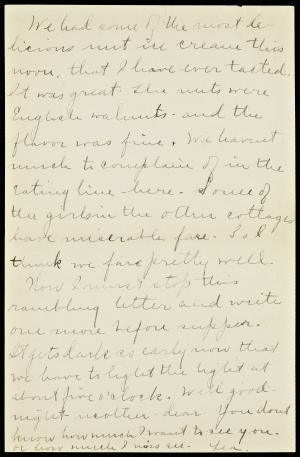 We had some of the most de-
licious nut ice cream this
noon, that I have ever tasted.
It was great. The nuts were
English walnuts - and the
flavor was fine. We havent
much to complain of in the
eating line here. Some of
the girls in the other cottages
have miserable fare. So I
think we fare pretty well.
Now I must stop this
rambling letter and write
one more before supper.
It gets dark so early now that
we have to light the light at
about five o'clock. Well good-
night - mother - dear You dont
know how much I want to see you -
or how much I miss